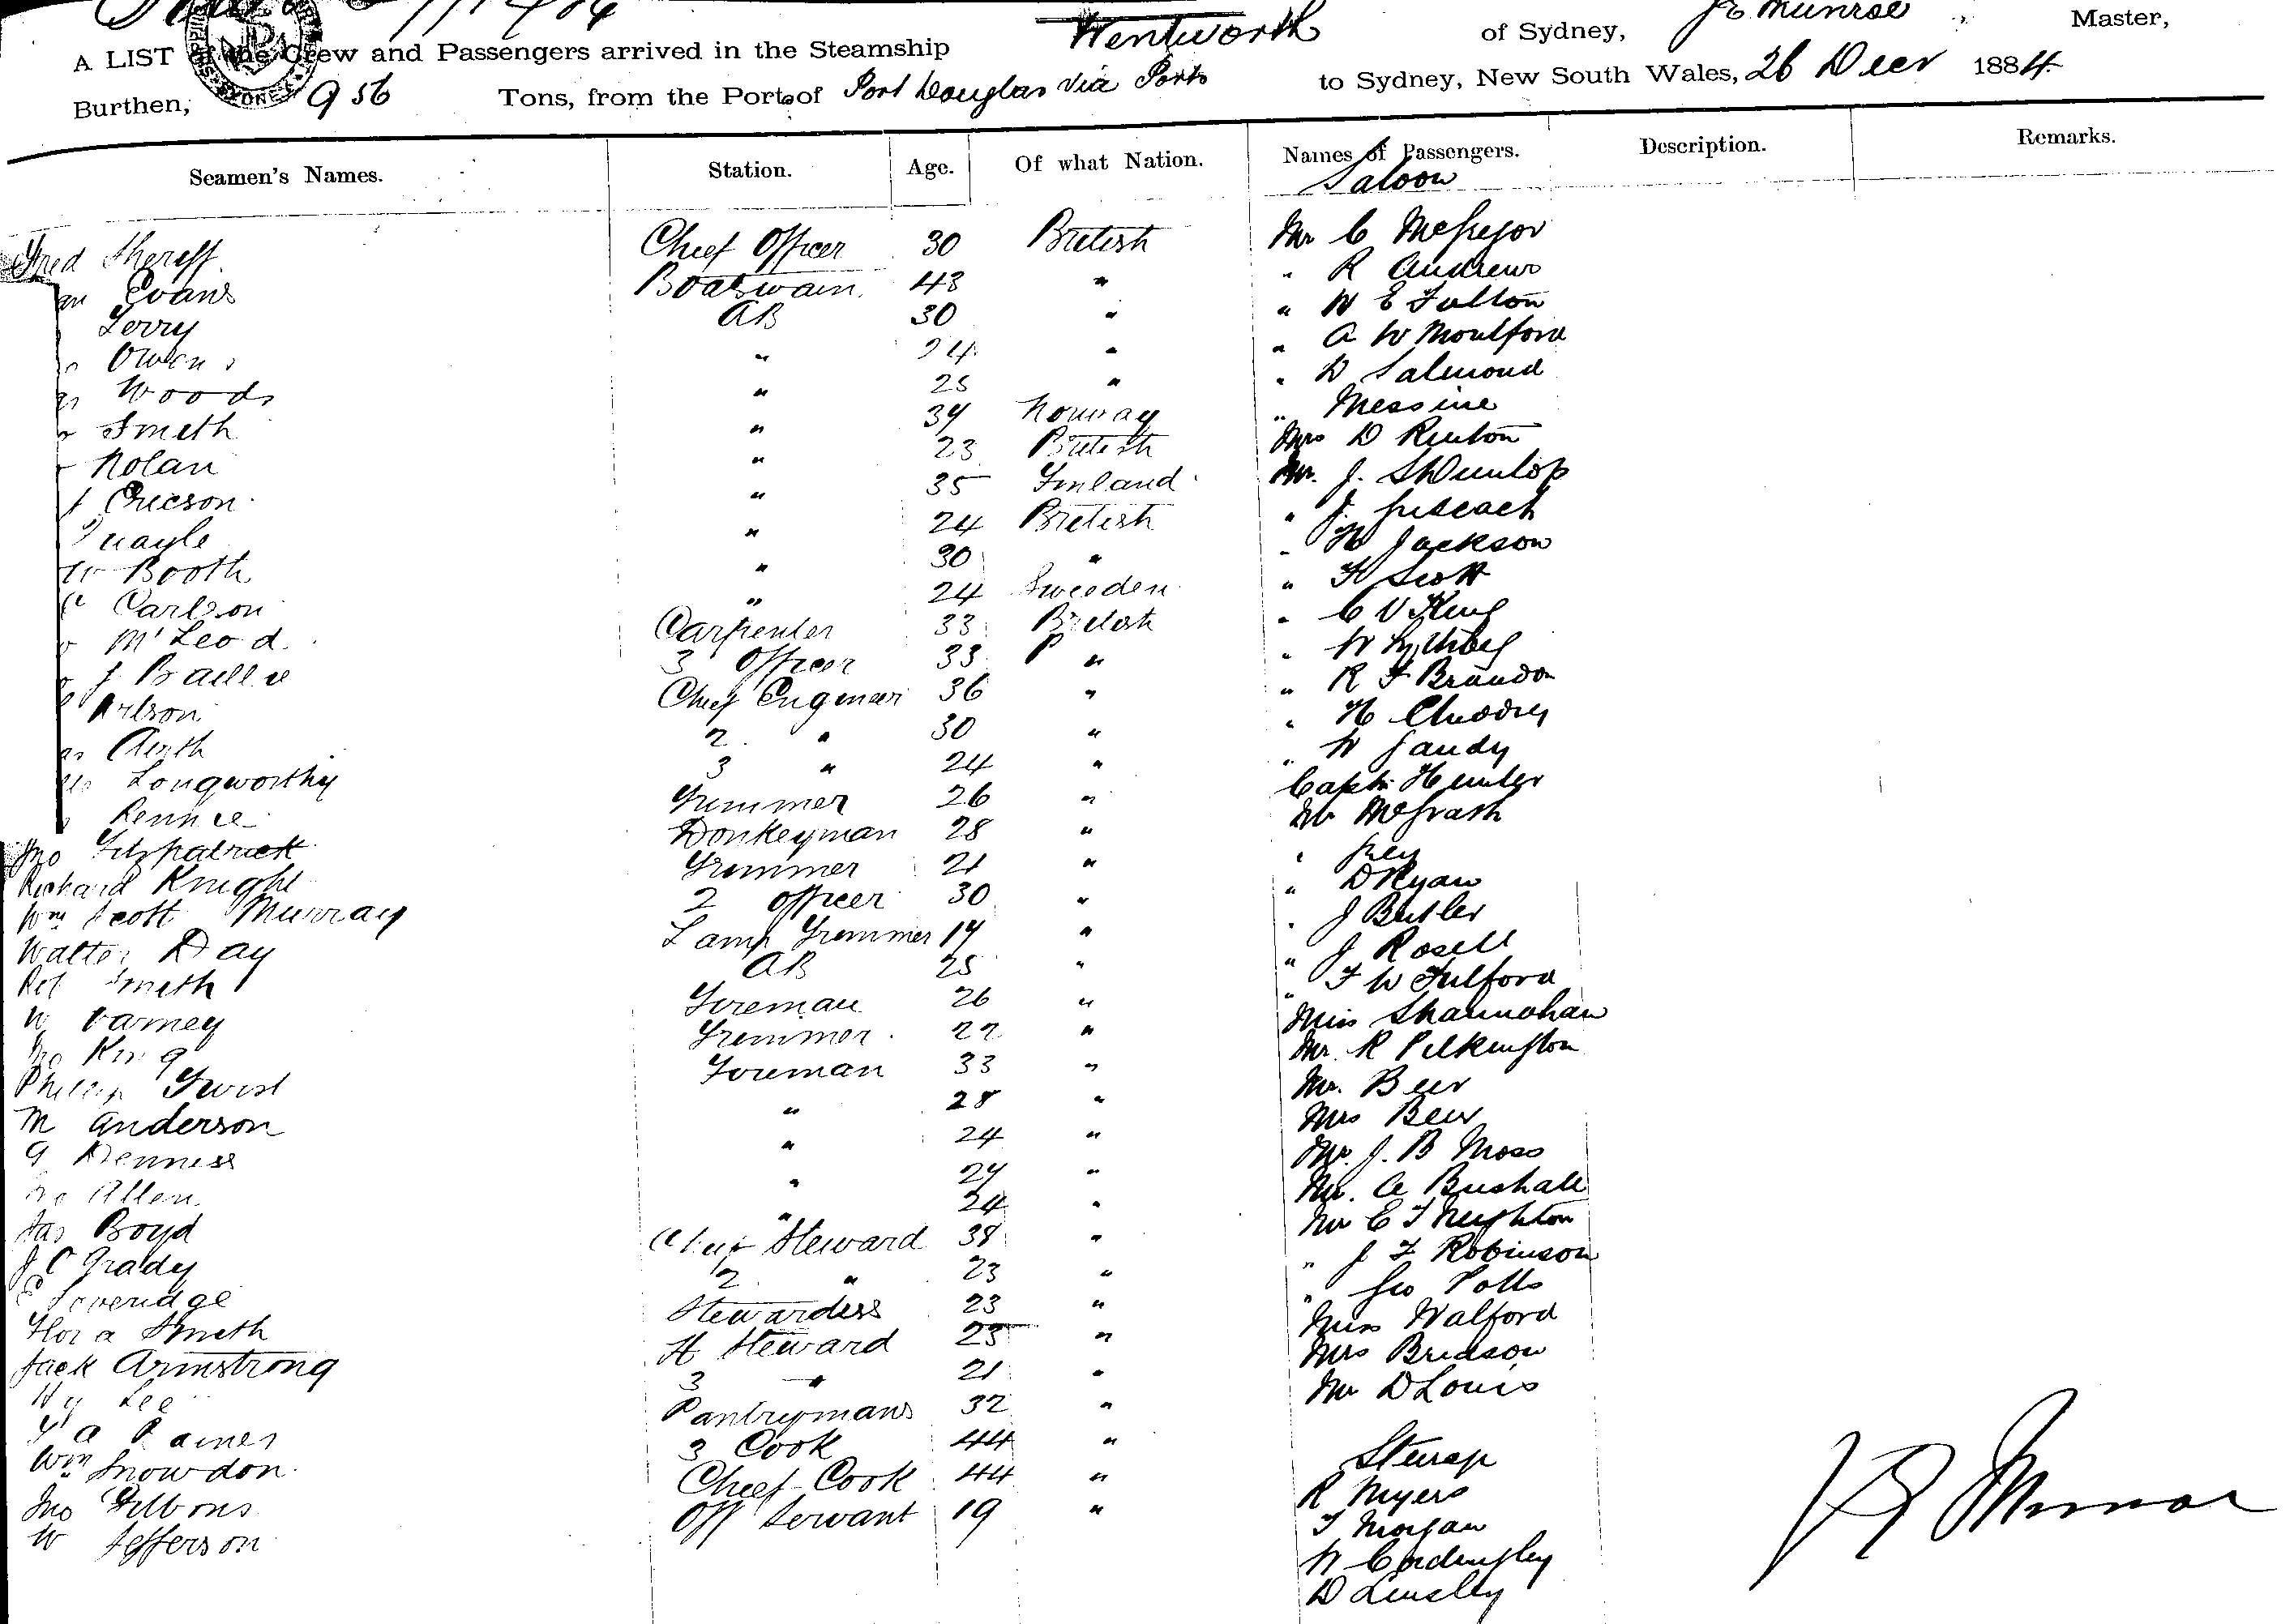 Wentworth of Sydney, J E Munroe Master,
A LIST of the Crew and Passengers arrived in the Steamship
Burthen, 956 Tons, from the Port of Port Douglas via Ports to Sydney, New South Wales, 26 Decr 1884
Seamen's Names. Station. Age. Of what Nation. Names of Passengers. Description. Remarks.
Saloon
Fred Shereff Chief Officer 30 British Mr C McGregor
Evans Boatswain 43 " " R Andrews
Terry AB 30 " " W E Fulton
Owen " 24 " " A W Moulford
Woods " 25 " " D Salmond
Smith " 34 Norway " Messine
Nolan " 23 British Mrs D Renton
Ericson " 35 Finland Mr. J. S Dunlop
Quayle " 24 British " J.
W Booth " 30 " " H Jackson
Carlson " 24 Sweeden " F Scott
McLeod Carpenter 33 British " C V King
J Baillie 3 Officer 33 " " W
Wilson Chief Engineer 36 " " R F Brandon
2 " 30 " " H
Longworthy 3 " 24 " " W Gandy
Rennie Trimmer 26 " Capt Hunter
Jno Fitzpatrick Donkeyman 28 " Mr McGrath
Richard Knight Trimmer 21 " " Grey
Wm Scott Murray 2 Officer 30 " " D Ryan
Walter Day Lamp Trimmer 19 " " J Butler
Smith AB 25 " " J Rosell
W Varney Fireman 26 " " F W Fulford
King Trimmer 22 " Miss Shannahan
Phillip Twist Fireman 33 " Mr. R Pilkington
M Anderson " 28 " Mr. Beer
G Denniss " 24 " Mrs Beer
Allen " 24 " Mr. J. B Moss
Jas Boyd " 24 " Mr. A Bushall
J C Grady Chief Steward 38 " Mr E T Neighton
E Loveridge 2 " 23 " " J F Robinson
Flora Smith Stewardess 23 " " Geo Potts
Jack Armstrong Steward 25 " Miss Walford
Hy Lee 3 " 21 " Mrs Bridson
Pantrymans 32 " Mr D Louis
Wm Snowdon 3 Cook 44 " Steerage
Jno Gibbons Chief Cook 44 " R Myers
W Jefferson Off Servant 19 " T Morgan
W Cordingley
D Linsley
J E Munroe